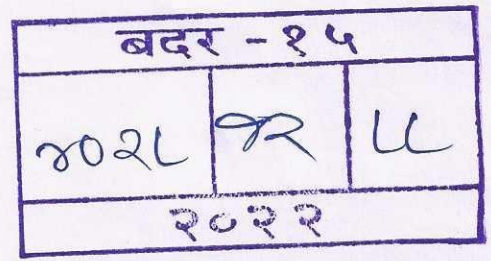 बदर -१५
४०२८ ४२ ८८
२०२२